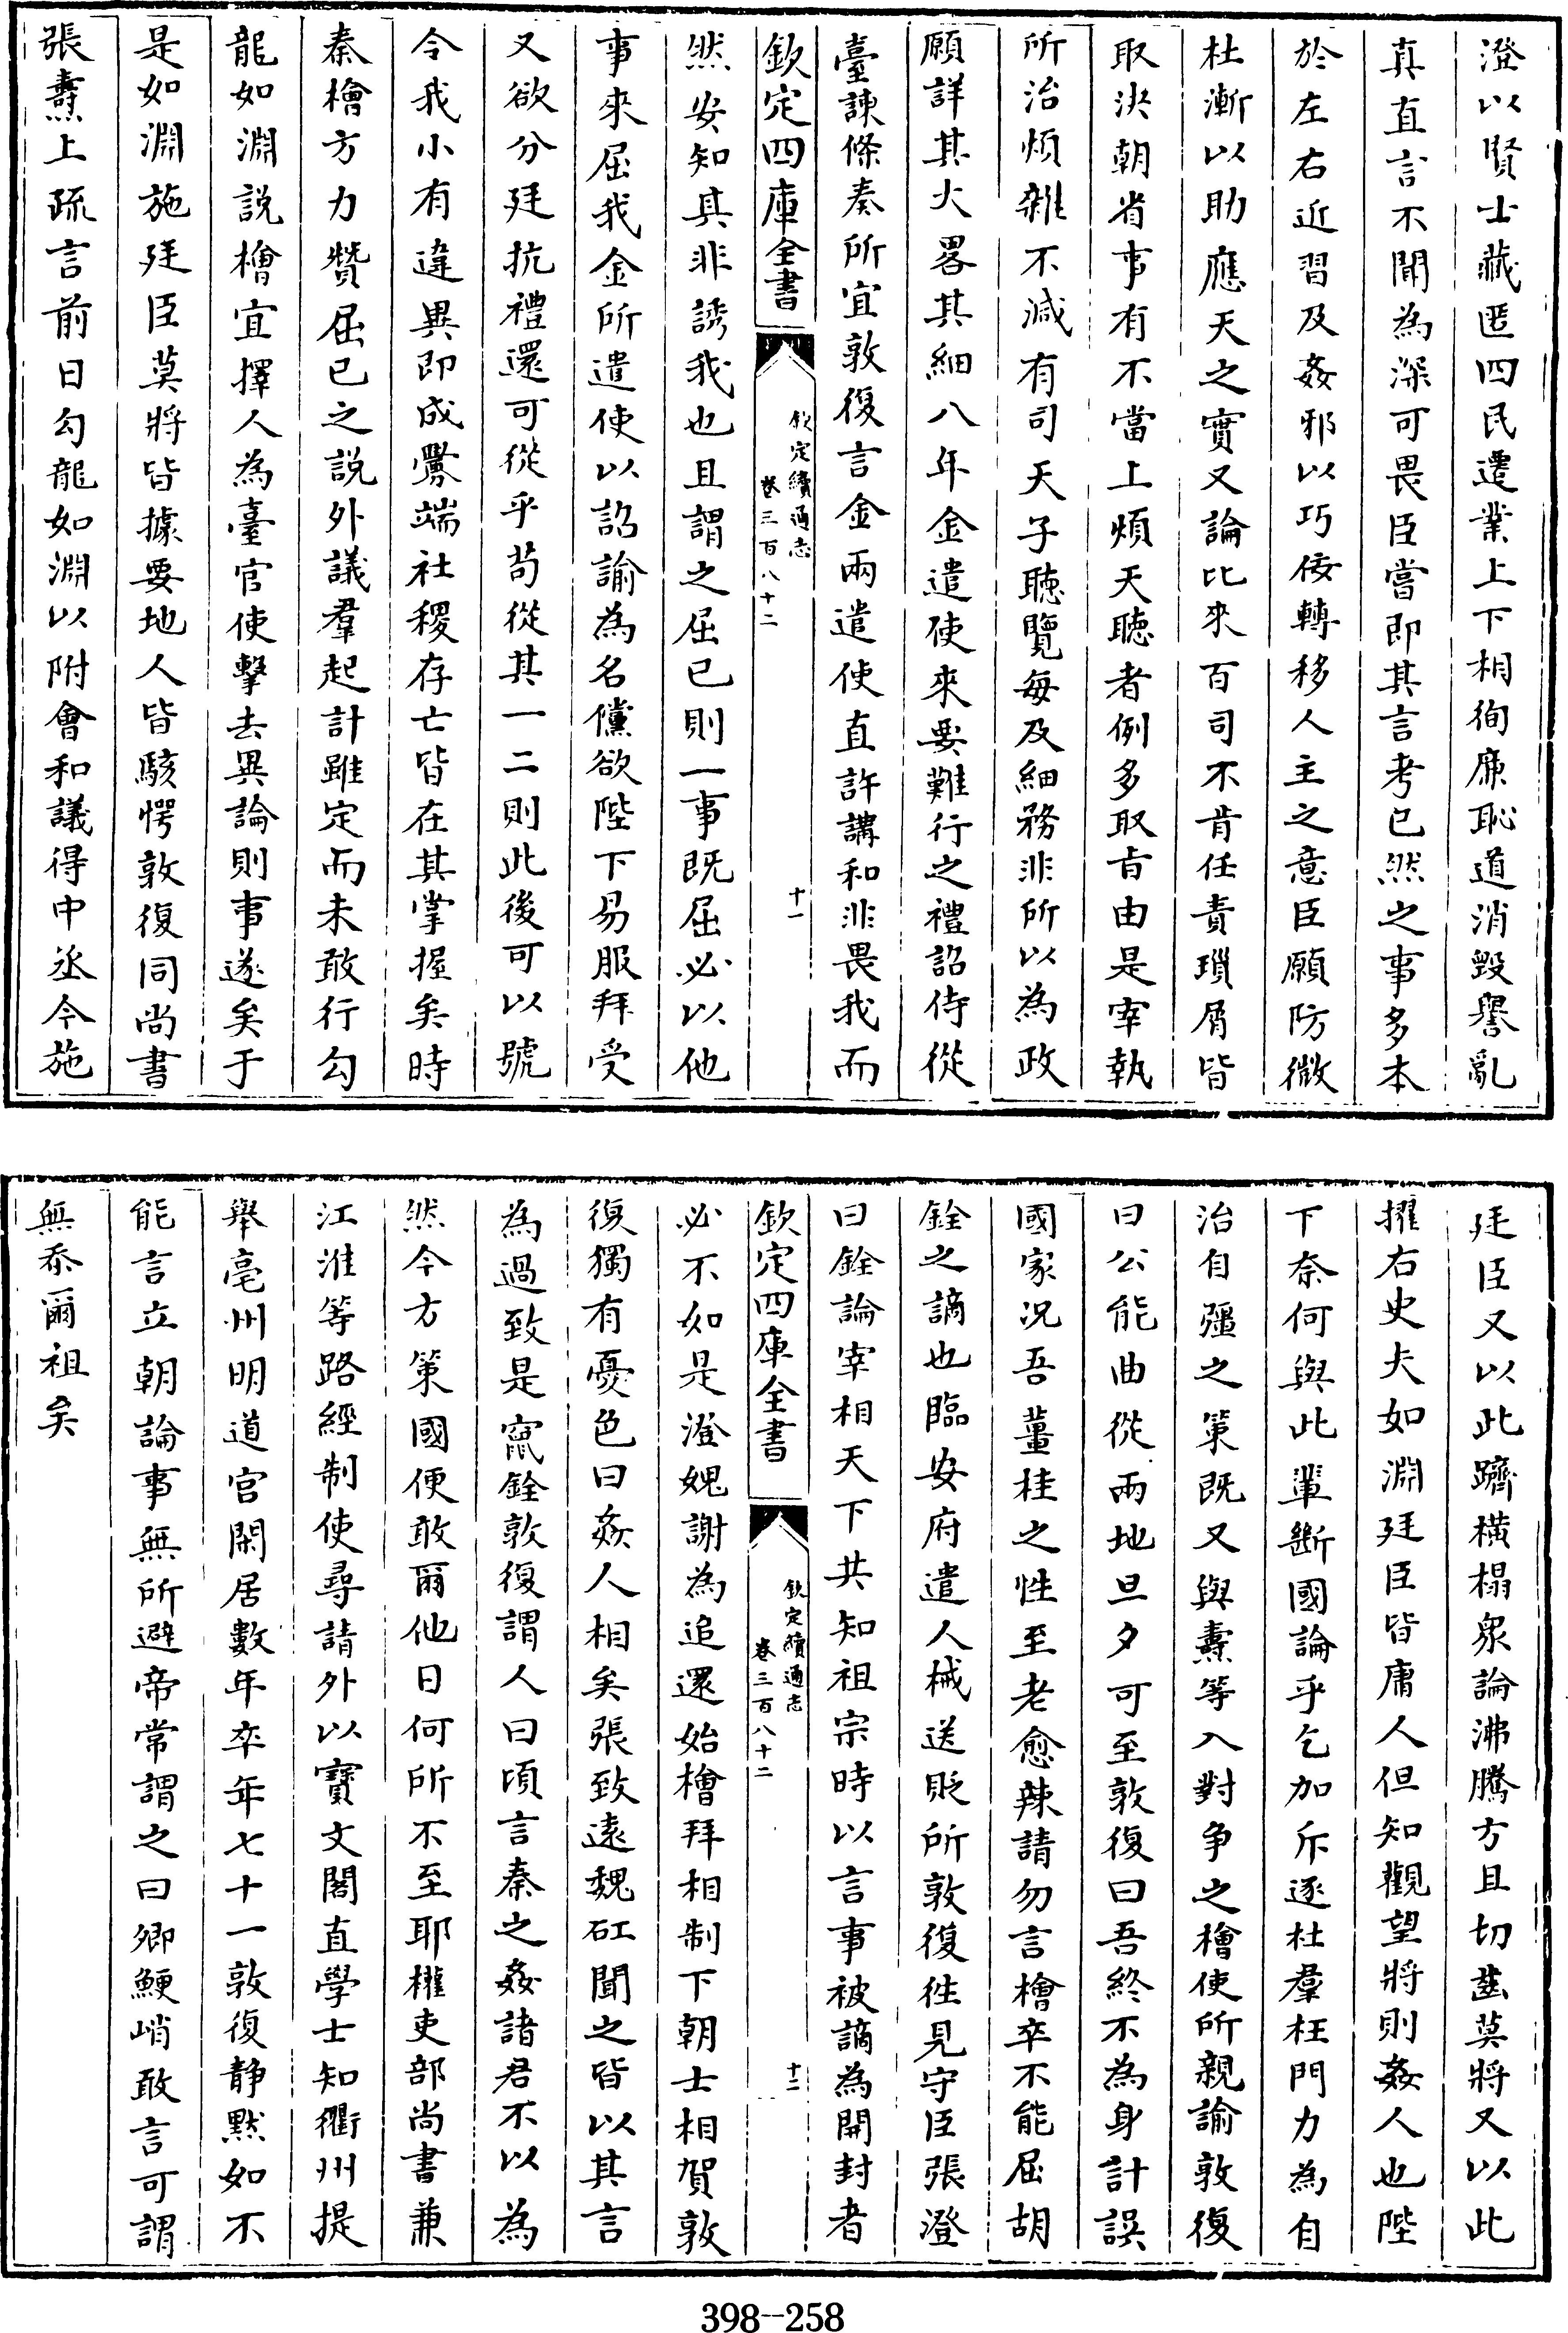 澄以賢士藏匿四民遷業上下相徇廉恥道消毀譽亂
真直言不聞為深可畏臣嘗即其言考已然之事多本
於左右近習及姦邪以巧佞轉移人主之意臣願防微
杜漸以助應天之實又論比來百司不肯任責瑣屑皆
取決朝省事有不當上煩天聽者例多取旨由是宰執
所治煩雜不減有司天子聽覽每及細務非所以為政
願詳其大畧其細八年金遣使來要難行之禮詔侍從
臺諫條奏所宜敦復言金兩遣使直許講和非畏我而
欽定四庫全書
欽定續通志
卷三百八十二
十一
然安知其非誘我也且謂之屈已則一事既屈必以他
事來屈我金所遣使以詔諭為名儻欲陛下易服拜受
又欲分廷抗禮還可從乎茍從其一二則此後可以號
令我小有違異即成釁端社稷存亡皆在其掌握矣時
秦檜方力贊屈已之說外議羣起計雖定而未敢行勾
龍如淵說檜宜擇人為臺官使擊去異論則事遂矣于
是如淵施廷臣莫將皆據要地人皆駭愕敦復同尚書
張燾上疏言前日勾龍如淵以附會和議得中丞今施
廷臣又以此躋橫榻衆論沸騰方且切齒莫將又以此
擢右史夫如淵廷臣皆庸人但知觀望將則姦人也陛
下奈何與此輩斷國論乎乞加斥逐杜羣枉門力為自
治自彊之策既又與燾等入對爭之檜使所親諭敦復
曰公能曲從兩地旦夕可至敦復曰吾終不為身計誤
國家況吾薑桂之性至老愈辣請勿言檜卒不能屈胡
銓之謫也臨安府遣人械送貶所敦復徃見守臣張澄
曰銓論宰相天下共知祖宗時以言事被謫為開封者
欽定四庫全書
欽定續通志
卷三百八十二
十二
必不如是澄媿謝為追還始檜拜相制下朝士相賀敦
復獨有憂色曰姦人相矣張致遠魏矼聞之皆以其言
為過致是竄銓敦復謂人曰頃言秦之姦諸君不以為
然今方策國便敢爾他日何所不至耶權吏部尚書兼
江淮等路經制使尋請外以寶文閣直學士知衢州提
舉亳州明道宮閑居數年卒年七十一敦復静默如不
能言立朝論事無所避帝常謂之曰卿鯁峭敢言可謂
無忝爾祖矣
398-258